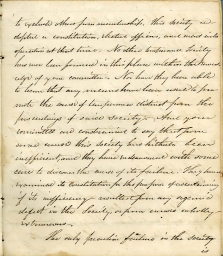 to exclude others from membership, this society
adopted a constitution, elected officers, and went into
operation at that time. No other temperance Society
has ever been formed in this place within the knowl-
edge of your committee. Nor have they been able
to learn that any means have been used to pro-
mote the cause of temperance distinct from the
proceedings of said society. And your
committee are constrained to say that from
some cause this society has hitherto been
inefficient, and they have endeavored with some
care to discover the cause of its failure. They have
examined its constitution for the purpose of ascertaining
if its inefficiency resulted from any organic
defect in the Society, or from causes wholly
extraneous.
The only peculiar feature in the society
is